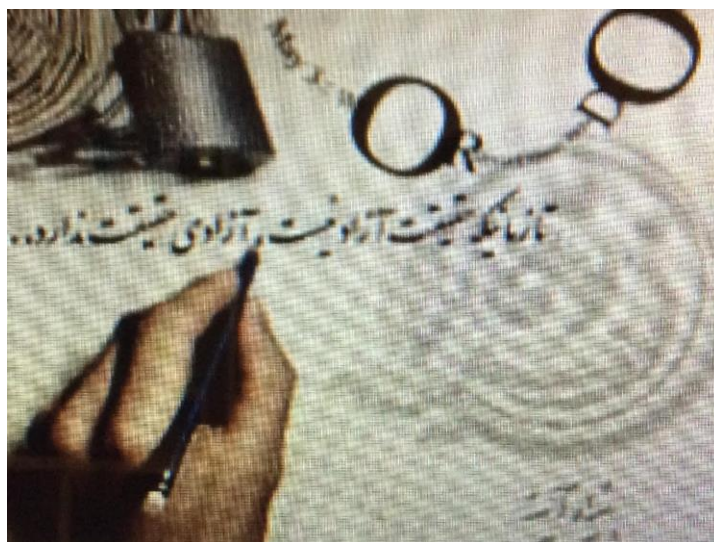 May
ORDO
تا زمانیکه حقیقت آزاد نیست، آزادی حقیقت ندارد..